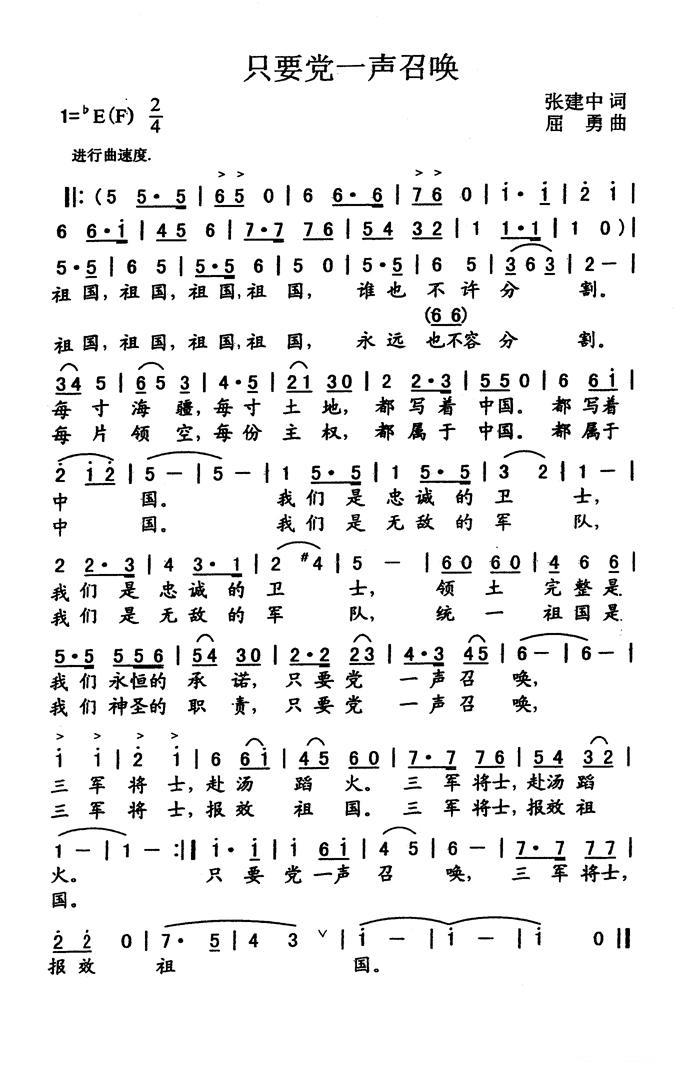 只要党一声召唤
1=♭E(F) 2/4
张建中 词
屈 勇 曲
进行曲速度.
> > > >
‖:(5 5·5|65 0|6 6·6|76 0|i·i|2 i|
6 6·i|45 6|7·7 76|54 32|1 1·1|1 0)|
5·5|6 5|5·5 6|5 0|5·5|6 5|363|2-|
祖国,祖国,祖国,祖国, 谁也不许分割。
(66)
祖国,祖国,祖国,祖国, 永远也不容分割。
34 5|65 3|4·5|21 30|2 2·3|550|6 6i|
每寸海疆,每寸土地,都写着中国。都写着
每片领空,每份主权,都属于中国。都属于
2 i2|5-|5-|1 5·5|1 5·5|3 2|1-|
中国。 我们是忠诚的卫士,
中国。 我们是无敌的军队,
2 2·3|4 3·1|2 #4|5 -|60 60|4 6 6|
我们是忠诚的卫士, 领土完整是
我们是无敌的军队, 统一祖国是
5·5 556|54 30|2·2 23|4·3 45|6-|6-|
我们永恒的承诺,只要党一声召唤,
我们神圣的职责,只要党一声召唤,
> > > >
i i|2 i|6 6i|45 60|7·7 76|54 32|
三军将士,赴汤蹈火。三军将士,赴汤蹈
三军将士,报效祖国。三军将士,报效祖
1-|1-:‖i·i|i 6i|4 5|6-|7·7 77|
火。 只要党一声召唤,三军将士,
国。
2 2 0|7·5|4 3 ∨|i -|i -|i 0‖
报效祖国。